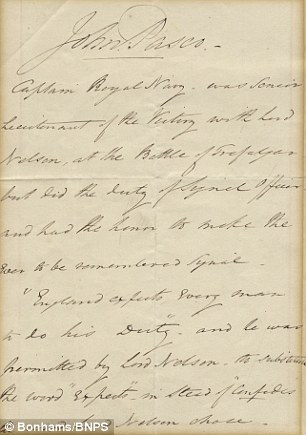 John Pasco. -
Captain Royal Navy. was Senior
Lieutenant of the Victory with Lord
Nelson, at the Battle of Trafalgar
but did the duty of Signal Officer
and had the honor to make the
Ever to be remembered Signal -
"England expects Every man
to do his Duty" - and he was
permitted by Lord Nelson - to substitute
the word "Expects" - in Stead of "Confides
Nelson chose -
© Bonhams/BNPS